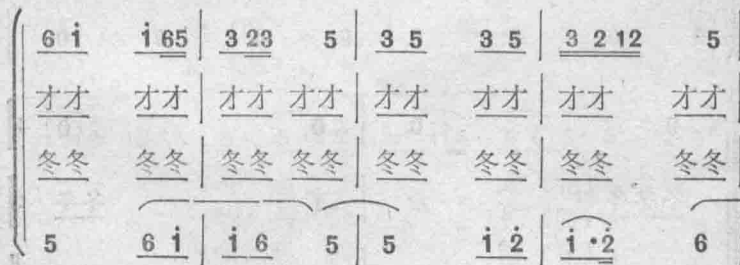 6 i̇ i̇ 65 | 3 23 5 | 3 5 3 5 | 3 2 12 5
才才 才才 | 才才 才才 | 才才 才才 | 才才 才才
冬冬 冬冬 | 冬冬 冬冬 | 冬冬 冬冬 | 冬冬 冬冬
5 6 i̇ | i̇ 6 5 | 5 i̇ 2̇ | i̇ · 2̇ 6